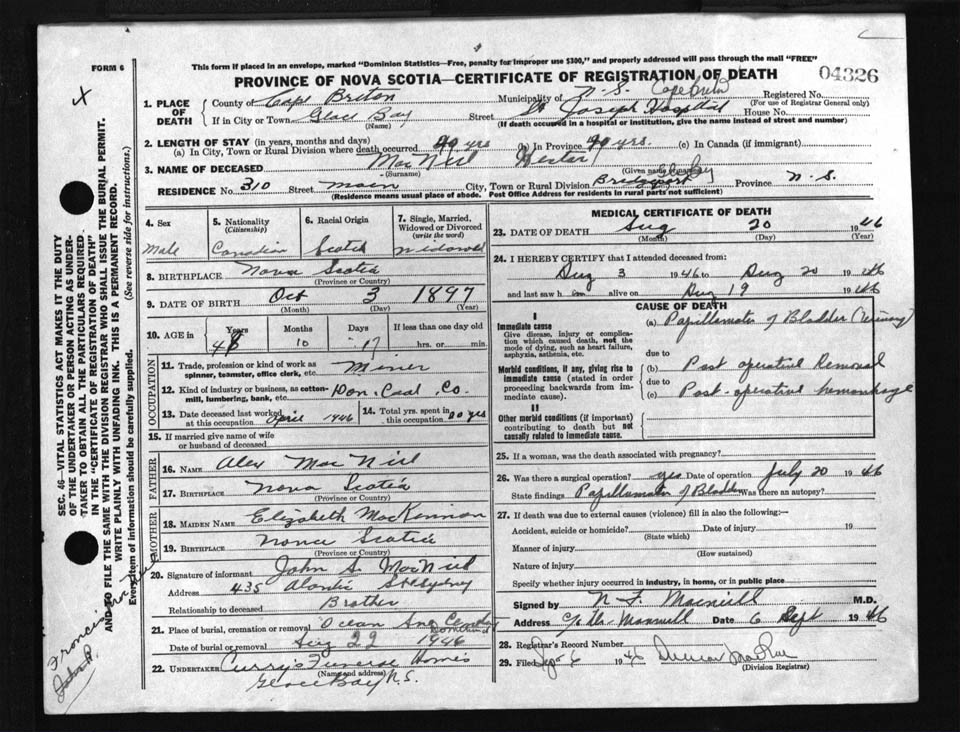 This form if placed in an envelope, marked "Dominion Statistics—Free, penalty for improper use $300," and properly addressed will pass through the mail "FREE"
FORM 6
PROVINCE OF NOVA SCOTIA—CERTIFICATE OF REGISTRATION OF DEATH
04326
1. PLACE OF DEATH
County of Cape Breton Municipality of N.S. Registered No.
(For use of Registrar General only)
If in City or Town Glace Bay Street St Joseph Hospital House No.
(Name) (If death occurred in a hospital or institution, give the name instead of street and number)
2. LENGTH OF STAY (in years, months and days)
(a) In City, Town or Rural Division where death occurred 49 yrs (b) In Province 49 yrs. (c) In Canada (if immigrant)
3. NAME OF DECEASED MacNeil
(Surname) (Given name
RESIDENCE No. 310 Street Main City, Town or Rural Division Province N.S.
(Residence means usual place of abode. Post Office Address for residents in rural parts not sufficient)
4. Sex
Male
5. Nationality
(Citizenship)
Canadian
6. Racial Origin
Scotch
7. Single, Married, Widowed or Divorced
(write the word)
Widowed
8. BIRTHPLACE Nova Scotia
(Province or Country)
9. DATE OF BIRTH Oct 3 1897
(Month) (Day) (Year)
10. AGE in Years Months Days If less than one day old
48 10 17 hrs. or min.
OCCUPATION
11. Trade, profession or kind of work as spinner, teamster, office clerk, etc. Miner
12. Kind of industry or business, as cotton-mill, lumbering, bank, etc. Dom. Coal Co.
13. Date deceased last worked at this occupation April 1946
14. Total yrs. spent in this occupation 20 yrs
15. If married give name of wife or husband of deceased
FATHER
16. NAME Alex MacNeil
17. BIRTHPLACE Nova Scotia
(Province or Country)
MOTHER
18. MAIDEN NAME Elizabeth MacKinnon
19. BIRTHPLACE Nova Scotia
(Province or Country)
20. Signature of informant John S. MacNeil
Address 435 St Sydney
Relationship to deceased Brother
21. Place of burial, cremation or removal Ocean
Date of burial or removal Aug 22 1946
22. UNDERTAKER Curry's Funeral Homes
(Name and address)
Glace Bay N.S.
MEDICAL CERTIFICATE OF DEATH
23. DATE OF DEATH Aug 20 1946
(Month) (Day) (Year)
24. I HEREBY CERTIFY that I attended deceased from:
Aug 3 1946 to Aug 20 1946
and last saw him alive on Aug 19 1946
CAUSE OF DEATH
I
Immediate cause
Give disease, injury or complication which caused death, not the mode of dying, such as heart failure, asphyxia, asthenia, etc.
(a) Papillomata of Bladder (Urinary)
due to
Morbid conditions, if any, giving rise to immediate cause (stated in order proceeding backwards from immediate cause).
(b) Post operative Removal
due to
(c) Post-operative hemorrhage
II
Other morbid conditions (if important) contributing to death but not causally related to immediate cause.
25. If a woman, was the death associated with pregnancy?
26. Was there a surgical operation? yes Date of operation July 20 1946
State findings Papillomata of Bladder Was there an autopsy?
27. If death was due to external causes (violence) fill in also the following:—
Accident, suicide or homicide? Date of injury 19
(State which)
Manner of injury
(How sustained)
Nature of injury
Specify whether injury occurred in industry, in home, or in public place
Signed by M.D.
Address Date 6 Sept 1946
28. Registrar's Record Number
29. Filed 6 1946
(Division Registrar)
SEC. 46—VITAL STATISTICS ACT MAKES IT THE DUTY
OF THE UNDERTAKER OR PERSON ACTING AS UNDER-
TAKER TO OBTAIN ALL THE PARTICULARS REQUIRED
IN THE "CERTIFICATE OF REGISTRATION OF DEATH"
AND TO FILE THE SAME WITH THE DIVISION REGISTRAR WHO SHALL ISSUE THE BURIAL PERMIT.
WRITE PLAINLY WITH UNFADING INK. THIS IS A PERMANENT RECORD.
Every item of information should be carefully supplied. (See reverse side for instructions.)
Francis
John P.